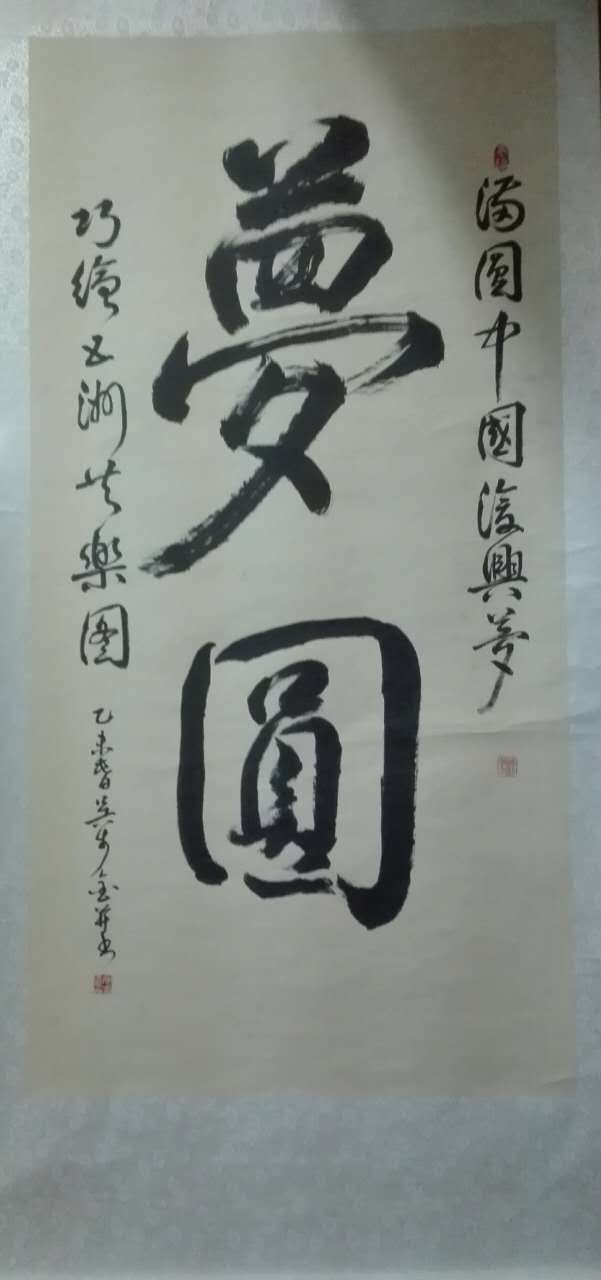 滿圓中國復興夢
夢圓
巧繪五洲共樂圖
乙未春吳步金并書